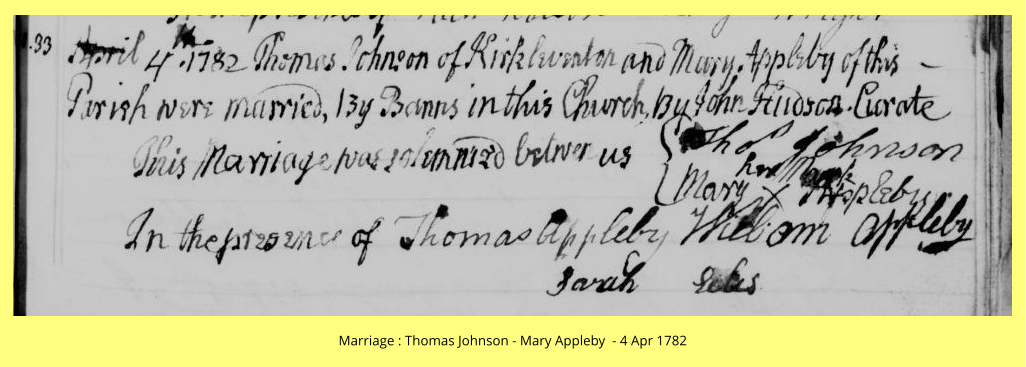 .33 April 4th. 1782 Thomas Johnson of Kirkleventon and Mary Appleby of this –
Parish were married, By Banns in this Church, By John Hudson Curate
This Marriage was solemnized between us { Thos Johnson
her Mark
Mary X Appleby
In the presence of Thomas Appleby William Appleby
Sarah
Marriage : Thomas Johnson - Mary Appleby - 4 Apr 1782